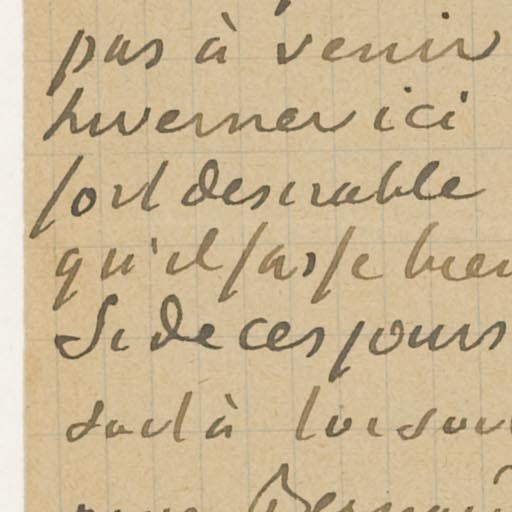 pas à venir
hiverner ici
fort desirable
qu'il fasse bien
Si de ces jours
soit à loisir